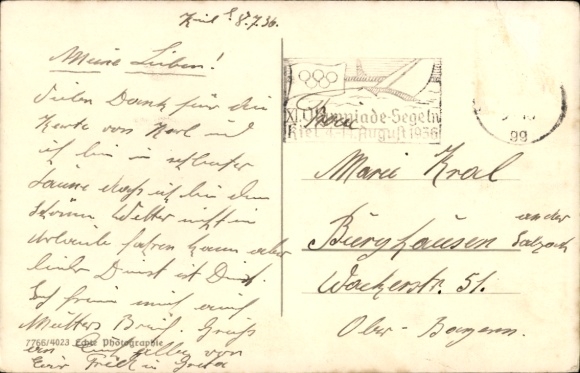 Kiel 8.7.36.
Meine Lieben!
Vielen Dank für die
Karte von Karl und
ich bin in schlechter
Laune dass ich bei dem
schönen Wetter nicht in
Urlaub fahren kann aber
leider Dienst ist Dienst.
Ich freue mich auf
Mutters Brief. Gruß
an Euch alle von
XI. Olympiade-Segeln
Kiel 4.-11. August 1936
Frau
Marie Kral
Burghausen an der
Salzach
Wackerstr. 51.
Ober-Bayern.
7766/4023 Echte Photographie